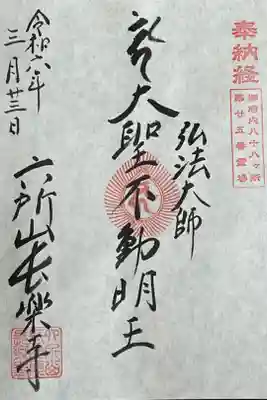 奉納経
御府内八十八ヶ所
第廿五番霊場
弘法大師
大聖不動明王
令和六年
三月廿三日
六所山長樂寺